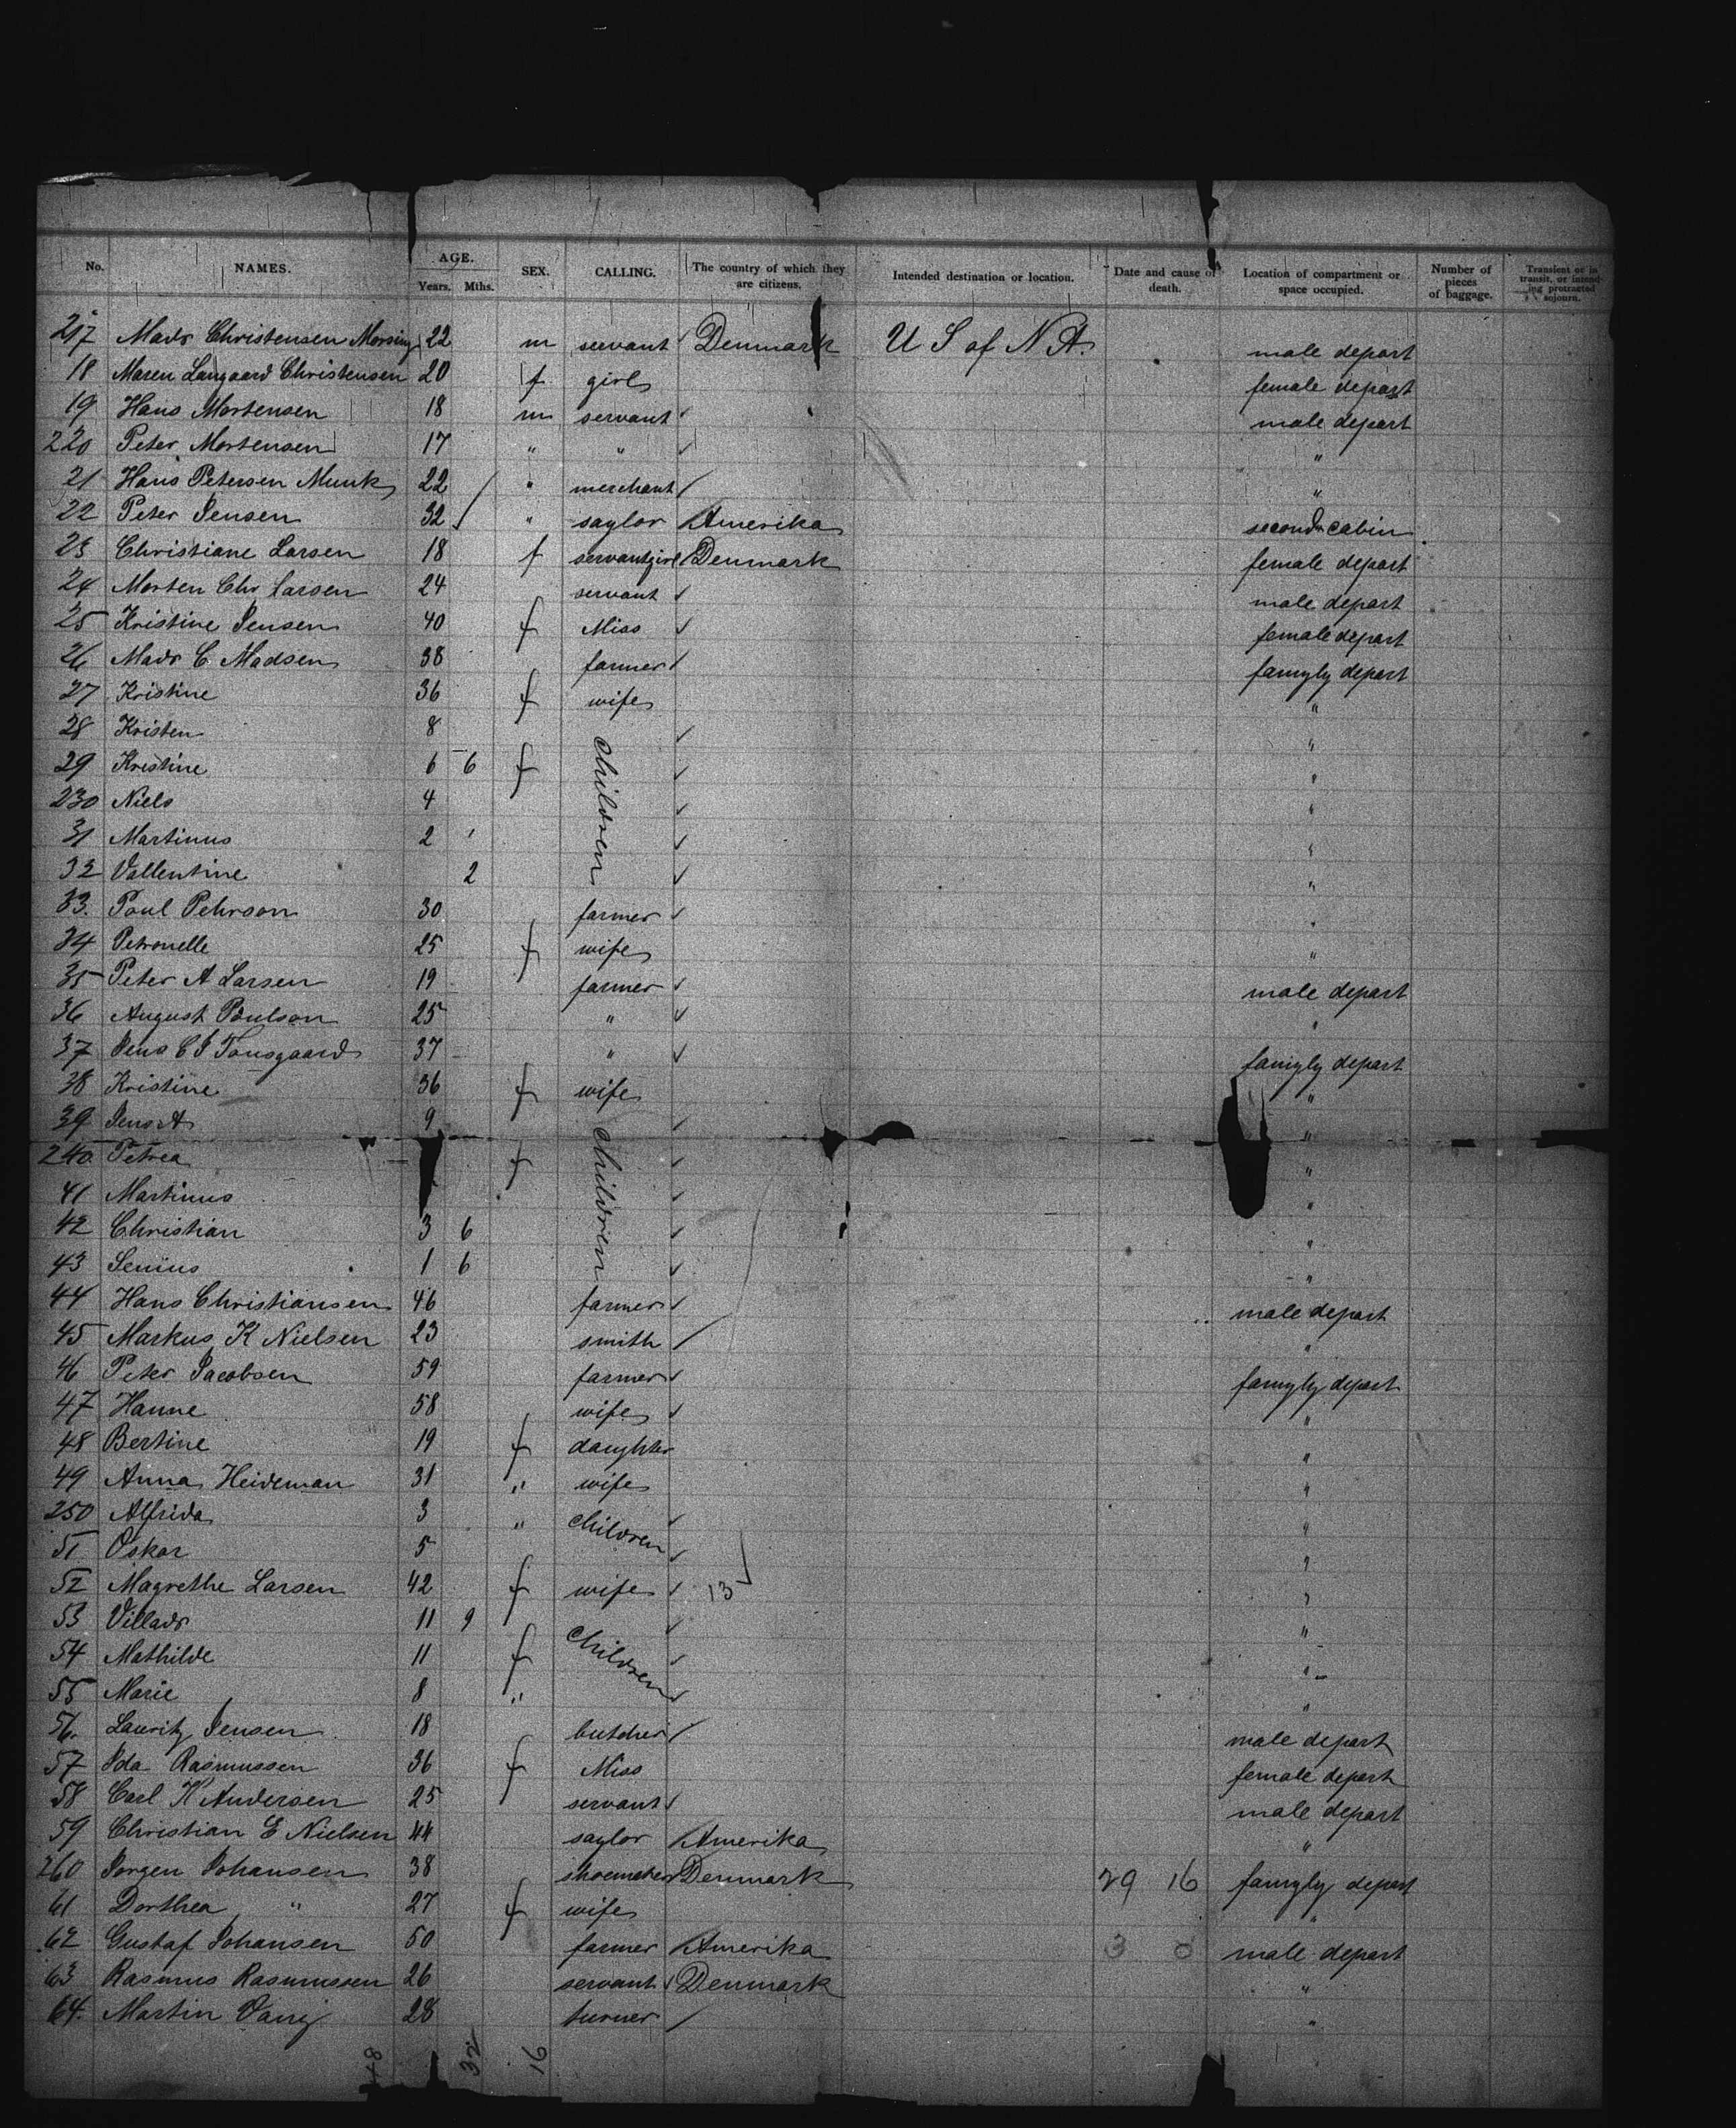 No. NAMES. AGE. Years. Mths. SEX. CALLING. The country of which they are citizens. Intended destination or location. Date and cause of death. Location of compartment or space occupied. Number of pieces of baggage. Transient or in transit, or intending protracted sojourn.
217 Mads Christensen Morsing 22 m servant Denmark U S of N A. male depart
18 Maren Langaard Christensen 20 f girl female depart
19 Hans Mortensen 18 m servant male depart
220 Peter Mortensen 17 " " "
21 Hans Petersen Munk 22 " merchant "
22 Peter Jensen 32 " saylor Amerika second cabin
23 Christiane Larsen 18 f servantgirl Denmark female depart
24 Morten Chr Larsen 24 servant male depart
25 Kristine Jensen 40 f Miss female depart
26 Mads C Madsen 38 farmer famyly depart
27 Kristine 36 f wife "
28 Kristen 8 children "
29 Kristine 6 6 f "
230 Niels 4 "
31 Martinus 2 "
32 Vallentine 2 "
33. Poul Pehrson 30 farmer "
34 Petronelle 25 f wife "
35 Peter A Larsen 19 farmer male depart
36 August Poulson 25 " "
37 Jens C J Tonsgaard 37 " famyly depart
38 Kristine 36 f wife "
39 Jens A 9 children "
240 Petrea f "
41 Martinus "
42 Christian 3 6 "
43 Senius 1 6 "
44 Hans Christiansen 46 farmer male depart
45 Markus K Nielsen 23 smith "
46 Peter Jacobsen 59 farmer famyly depart
47 Hanne 58 wife "
48 Bertine 19 f daughter "
49 Anna Heideman 31 " wife "
250 Alfrida 3 " children "
51 Oskar 5 "
52 Magrethe Larsen 42 f wife 13 "
53 Villads 11 9 children "
54 Mathilde 11 f "
55 Marie 8 " "
56. Lauritz Jensen 18 butcher male depart
57 Ida Rasmussen 36 f Miss female depart
58 Carl K Andersen 25 servant male depart
59 Christian E Nielsen 44 saylor Amerika "
260 Jorgen Johansen 38 shoemaker Denmark 29 16 famyly depart
61 Dorthea " 27 f wife "
62 Gustaf Johansen 50 farmer Amerika 3 0 male depart
63 Rasmus Rasmussen 26 servant Denmark "
64. Martin 28 turner "
48 32 16